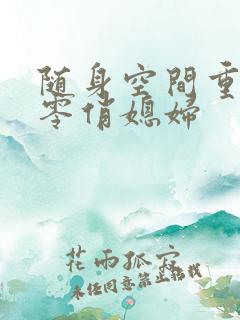 随身空間重
零俏媳婦
花雨孤穴
未经同意禁止转载